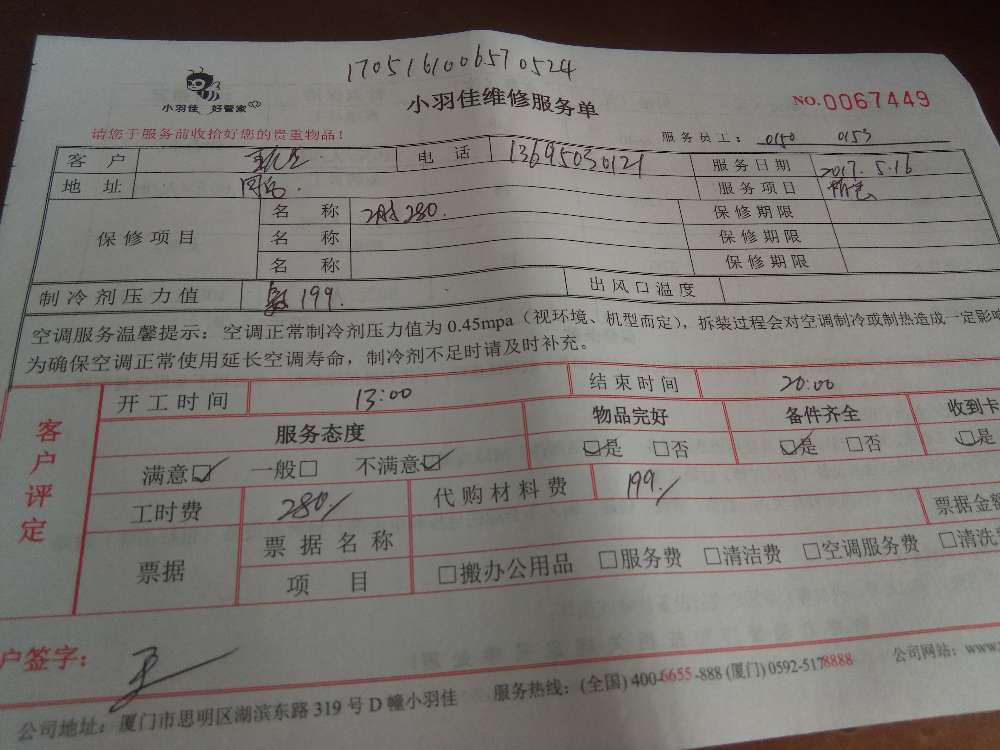 1705161006570524
小羽佳 好管家
小羽佳维修服务单
NO.0067449
请您于服务前收拾好您的贵重物品！
服务员工： 0140 0153
客户 电话 13695030121 服务日期 2017.5.16
地址 服务项目
保修项目 名称 280. 保修期限
名称 保修期限
名称 保修期限
制冷剂压力值 199. 出风口温度
空调服务温馨提示：空调正常制冷剂压力值为0.45mpa（视环境、机型而定），拆装过程会对空调制冷或制热造成一定影响
为确保空调正常使用延长空调寿命，制冷剂不足时请及时补充。
客户评定
开工时间 13:00 结束时间 20:00
服务态度 物品完好 备件齐全 收到卡
满意☑ 一般□ 不满意☑ ☑是 □否 ☑是 □否 ☑是
工时费 280/ 代购材料费 199/
票据 票据名称 票据金额
项目 □搬办公用品 □服务费 □清洁费 □空调服务费 □清洗
户签字： 王
公司地址：厦门市思明区湖滨东路319号D幢小羽佳 服务热线：(全国) 400-6655-888 (厦门) 0592-5178888 公司网站：www.